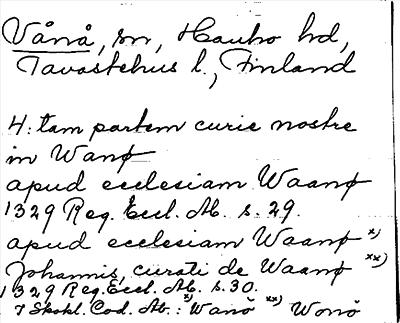 Vånå, sn, Hauho hd,
Tavastehus l., Finland
4: tam partem curie nostre
in Wanø
apud ecclesiam Waanø
1329 Reg. Eccl. Ab. s. 29.
apud ecclesiam Waanø x)
Johannis, curati de Waanø xx)
1329 Reg. Eccl. Ab. s. 30.
I Skokl. Cod. Ab.: x) Wanö xx) Wonö